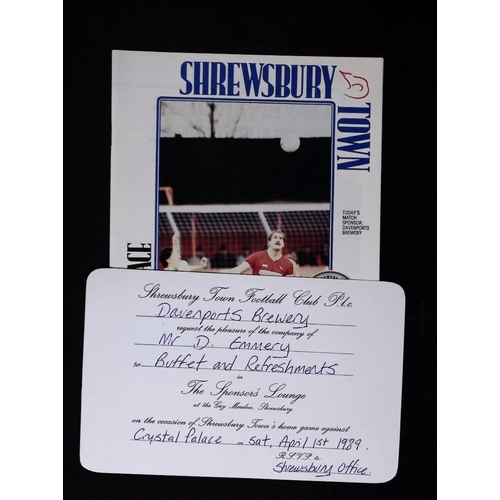 SHREWSBURY
TOWN
TODAY'S
MATCH
SPONSOR
DAVENPORTS
BREWERY
ACE
Shrewsbury Town Football Club P.l.c.
Davenports Brewery
request the pleasure of the company of
Mr D. Emmery
to Buffet and Refreshments
in
The Sponsors' Lounge
at the Gay Meadow, Shrewsbury
on the occasion of Shrewsbury Town's home game against
Crystal Palace on Sat, April 1st 1989.
R.S.V.P. to
Shrewsbury Office